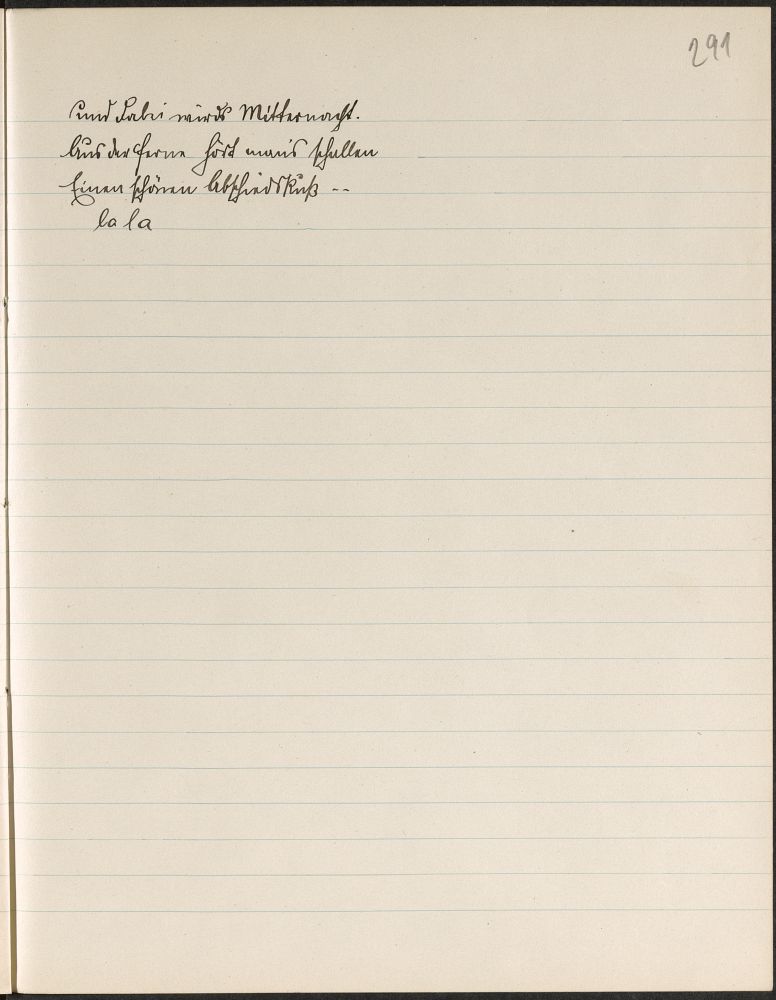 291
Und dabei wirds Mitternacht.
Aus der Ferne hört man's schallen
Einen schönen Abschiedskuß --
la la